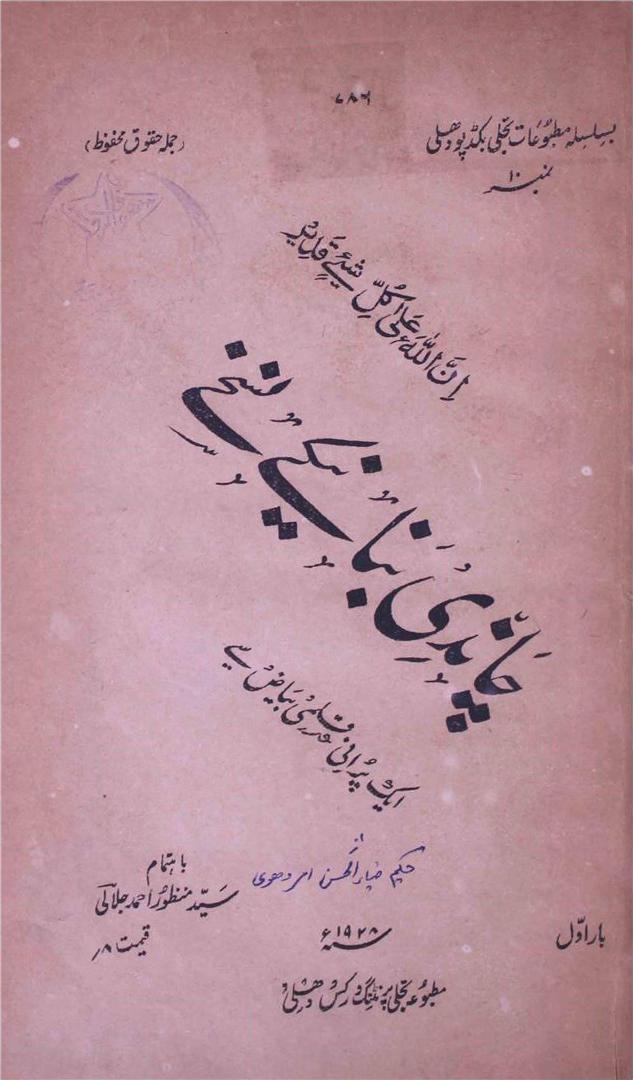 ۷۸۶
بسلسلہ مطبوعات تجلی بکڈپو دھلی
(جملہ حقوق محفوظ)
نمبر ۱۰
اِنَّ اللّٰہَ عَلیٰ کُلِّ شَیْئٍ قَدِیْر
چاندی بنانیکے نسخے
ایک پُرانی قلمی بیاض سے
حکیم ضیاء الحسن امروھوی
باہتمام
سیّد منظور احمد جلالی
بار اوّل
سنہ ۱۹۲۸ء
قیمت ۸؍
مطبوعہ تجلی پرنٹنگ ورکس دھلی